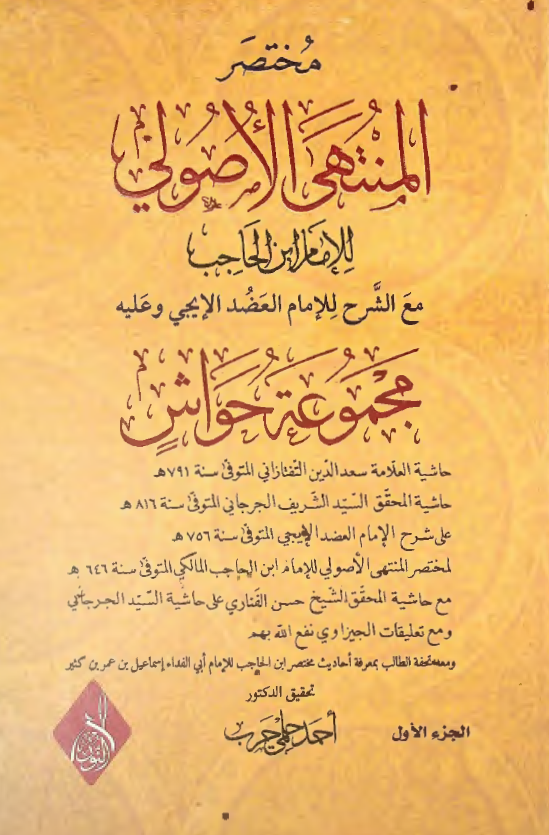 مُختصَر
المُنتَهَى الأُصُولي
لِلإمَام ابن الحَاجِب
معَ الشَّرح لِلإمام العَضُد الإيجي وعَليه
مَجْمُوعَة حَوَاشٍ
حاشية العلّامة سعد الدّين التّفتازاني المتوفّى سنة ٧٩١هـ
حاشية المحقّق السّيّد الشّريف الجرجاني المتوفّى سنة ٨١٦ هـ
على شرح الإمام العضد الإيجي المتوفّى سنة ٧٥٦ هـ
لمختصر المنتهى الأصولي للإمام ابن الحاجب المالكي المتوفّى سنة ٦٤٦ هـ
مع حاشية المحقّق الشّيخ حسن الفناري على حاشية السّيّد الجرجاني
ومع تعليقات الجيزاوي نفع الله بهم
ومعه تحفة الطالب بمعرفة أحاديث مختصر ابن الحاجب للإمام أبي الفداء إسماعيل بن عمر بن كثير
تحقيق الدكتور
أحمد حلمي حرب
الجزء الأول
النور